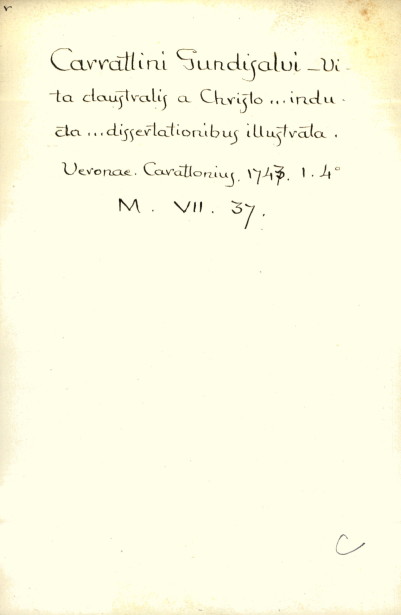 Carrattini Gundisalvi - Vi-
ta claustralis a Christo ... indu-
cta ... dissertationibus illustrata.
Veronae. Carattonius. 1743. 1. 4°
M. VII. 37.
C